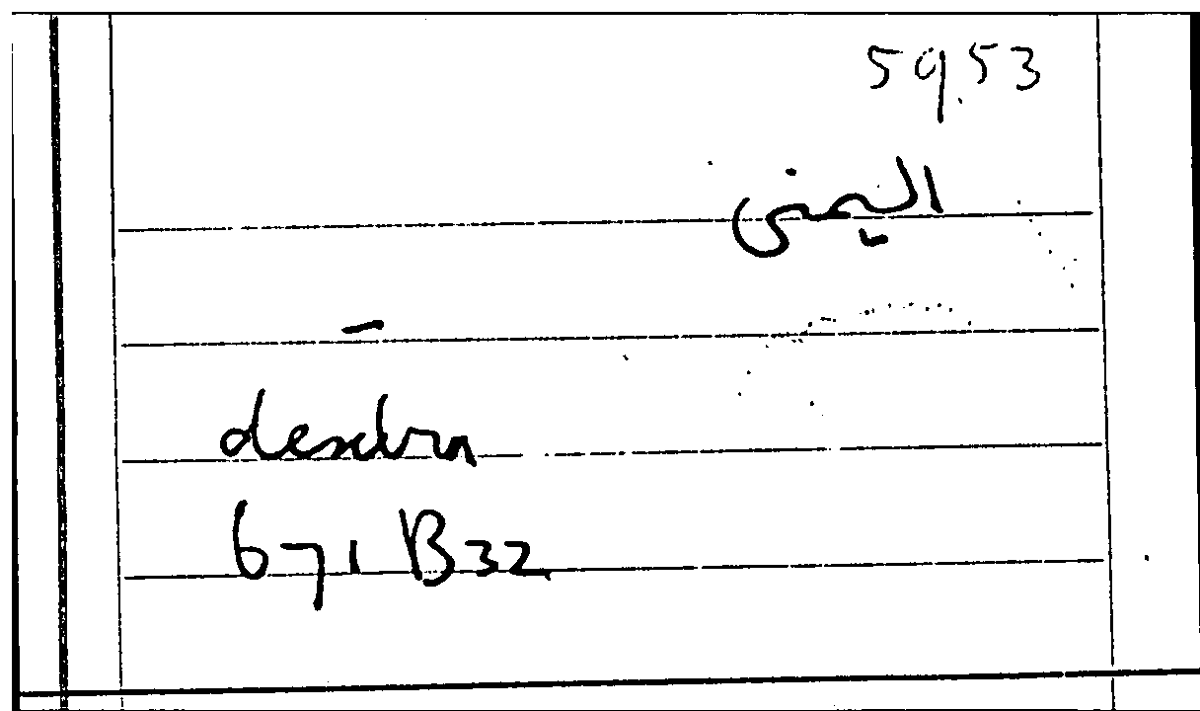 59.53
اليمنى
–
dextra
671 B32